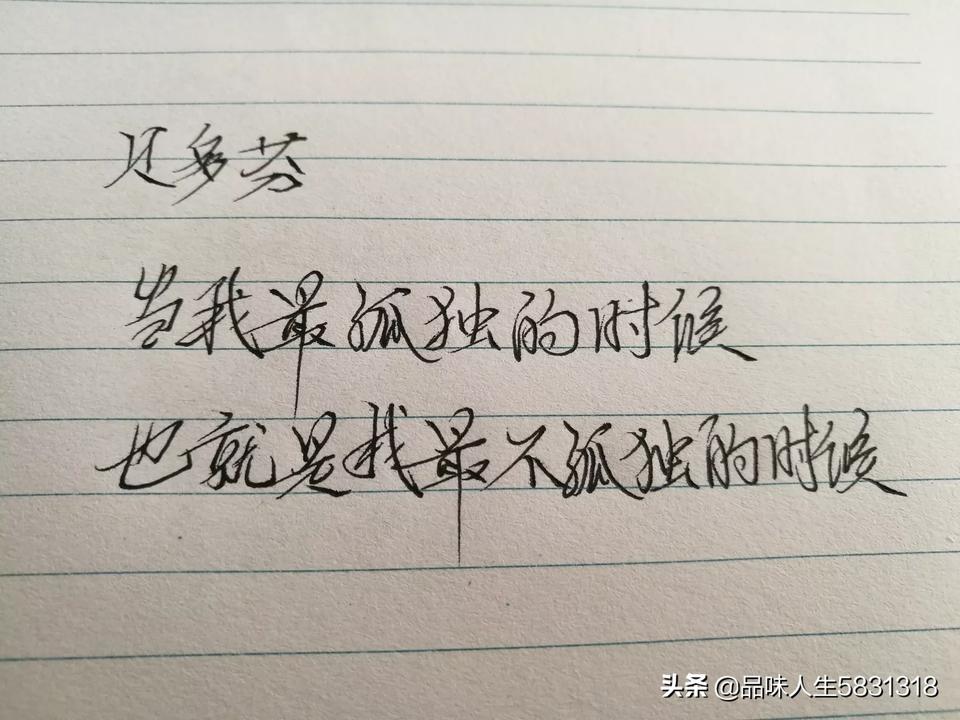 贝多芬
当我最孤独的时候
也就是我最不孤独的时候
头条 @品味人生5831318